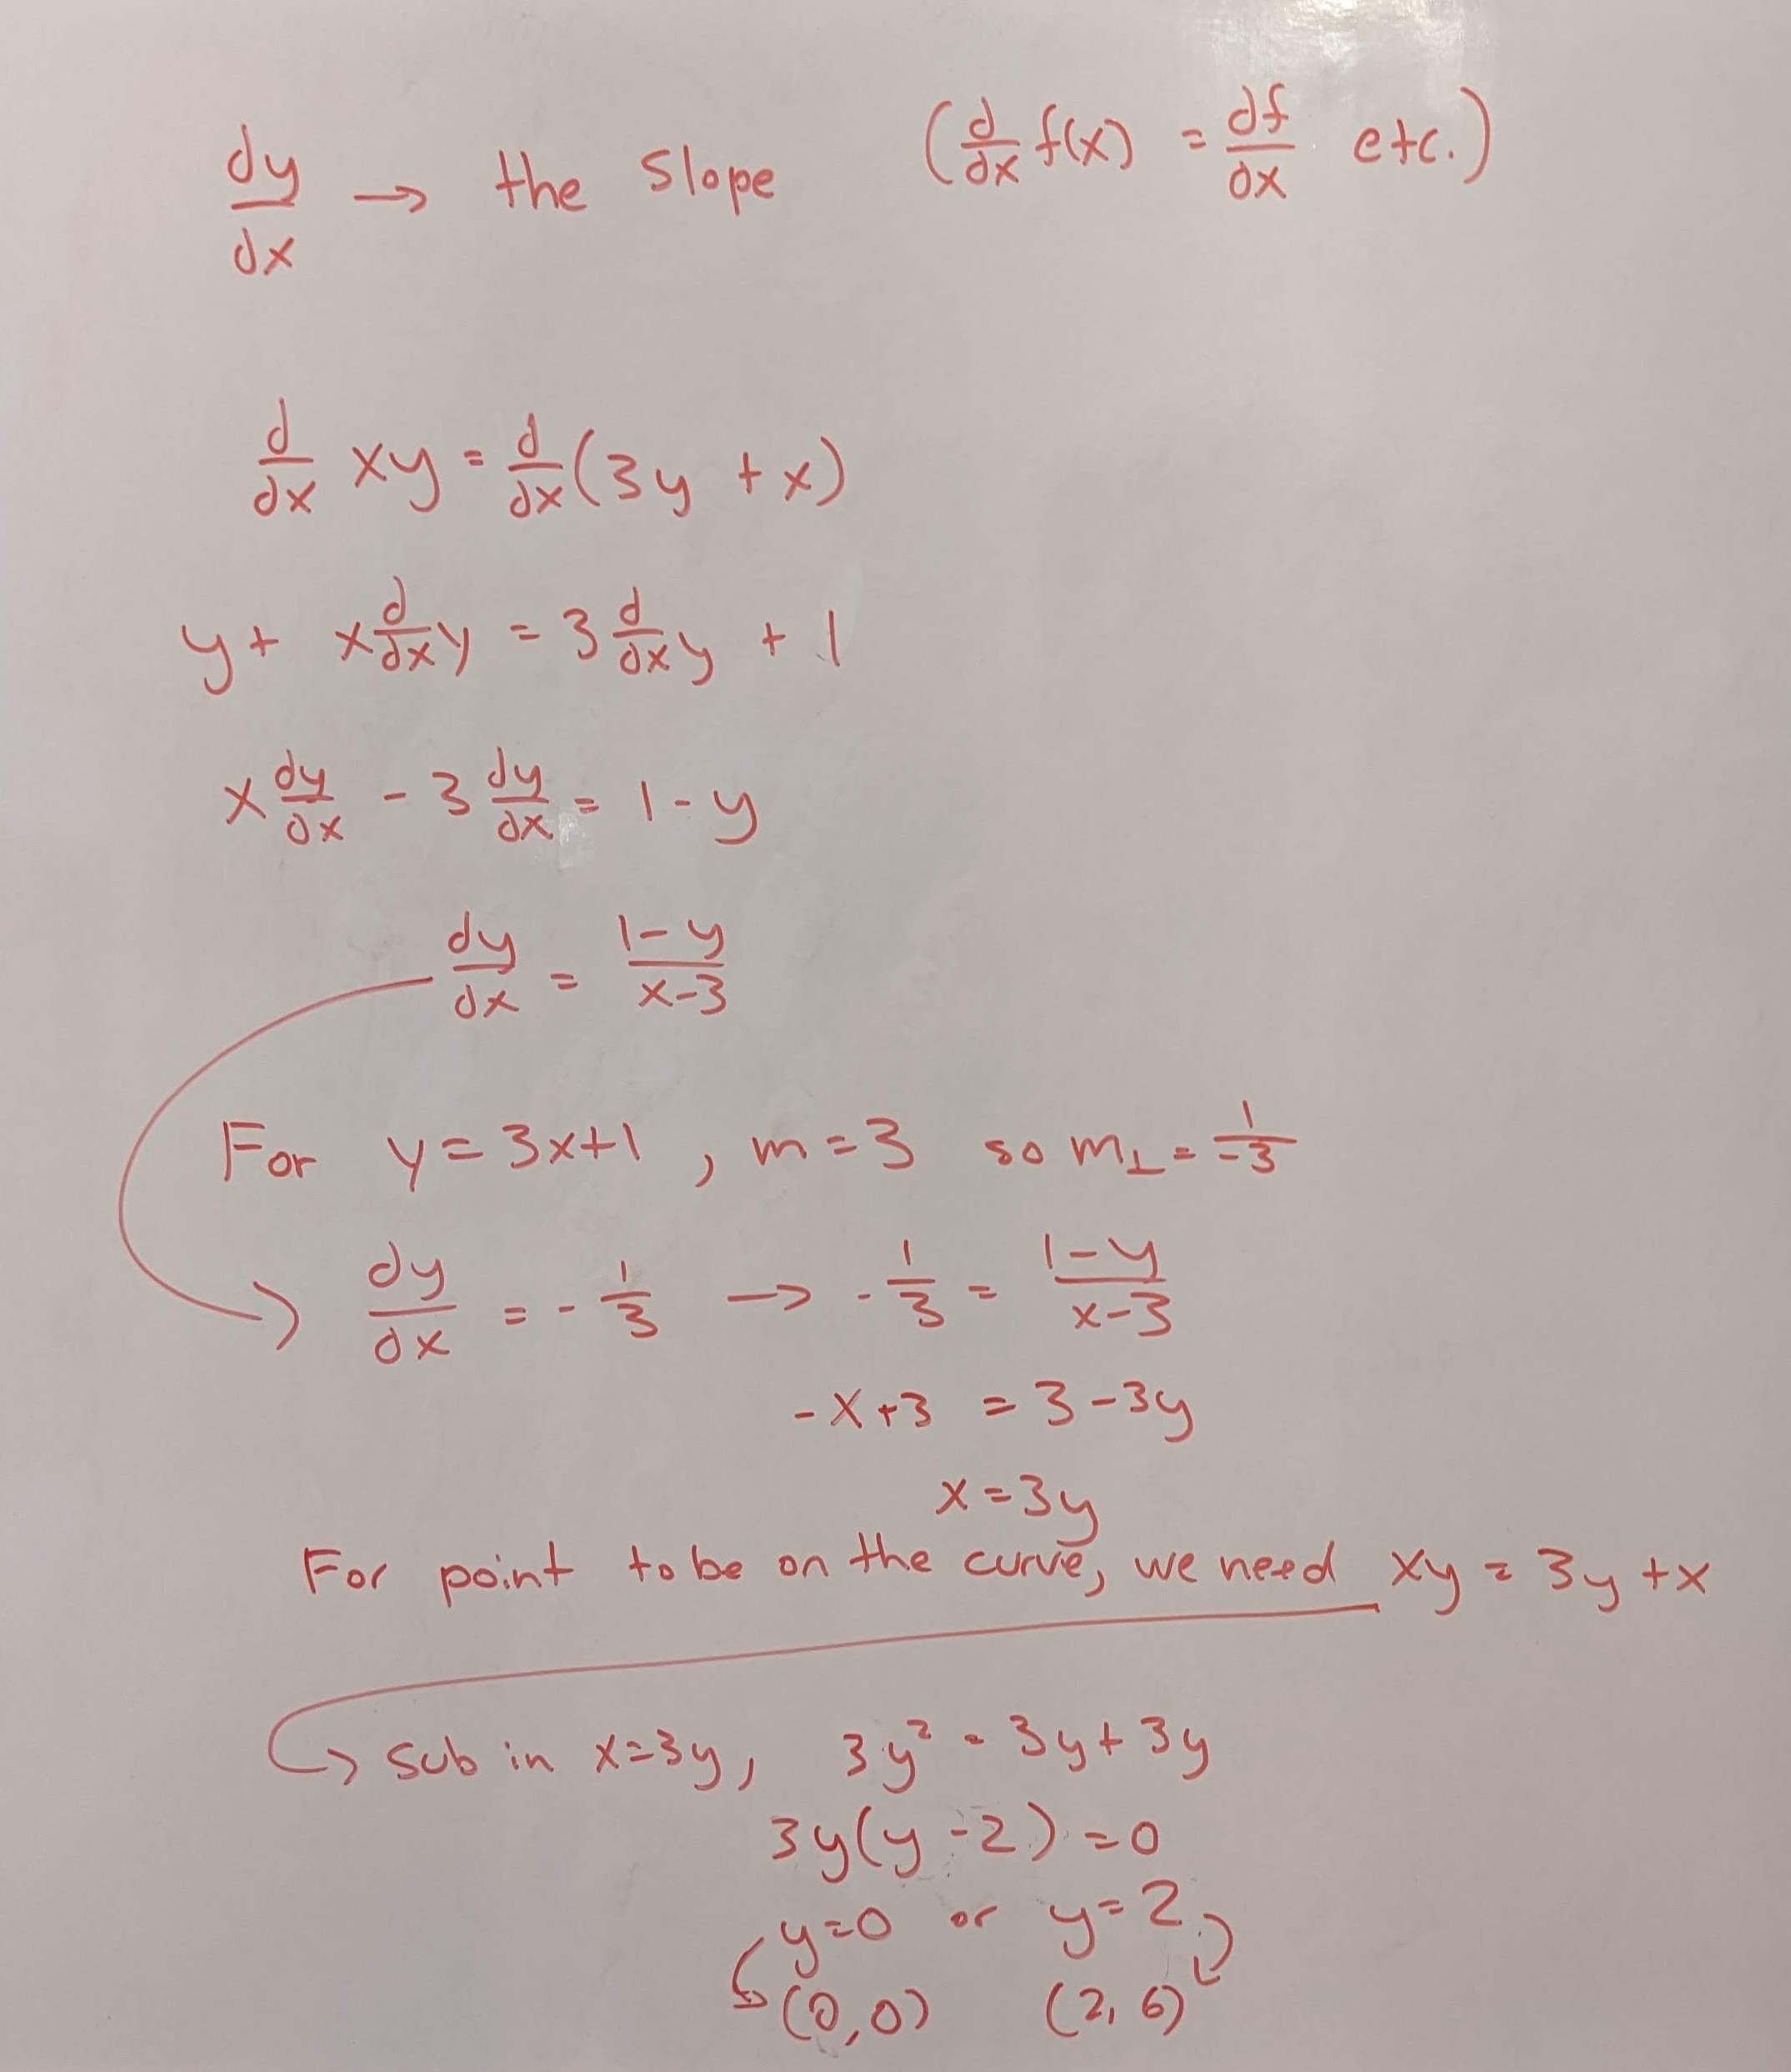 dy/dx → the slope (d/dx f(x) = df/dx etc.)
d/dx xy = d/dx (3y + x)
y + x d/dx y = 3 d/dx y + 1
x dy/dx - 3 dy/dx = 1 - y
dy/dx = (1-y)/(x-3)
For y = 3x+1, m = 3 so m⊥ = 1/-3
dy/dx = -1/3 → -1/3 = (1-y)/(x-3)
-x+3 = 3-3y
x = 3y
For point to be on the curve, we need xy = 3y + x
sub in x=3y, 3y² = 3y + 3y
3y(y-2) = 0
y=0 or y=2
(0,0) (2,6)